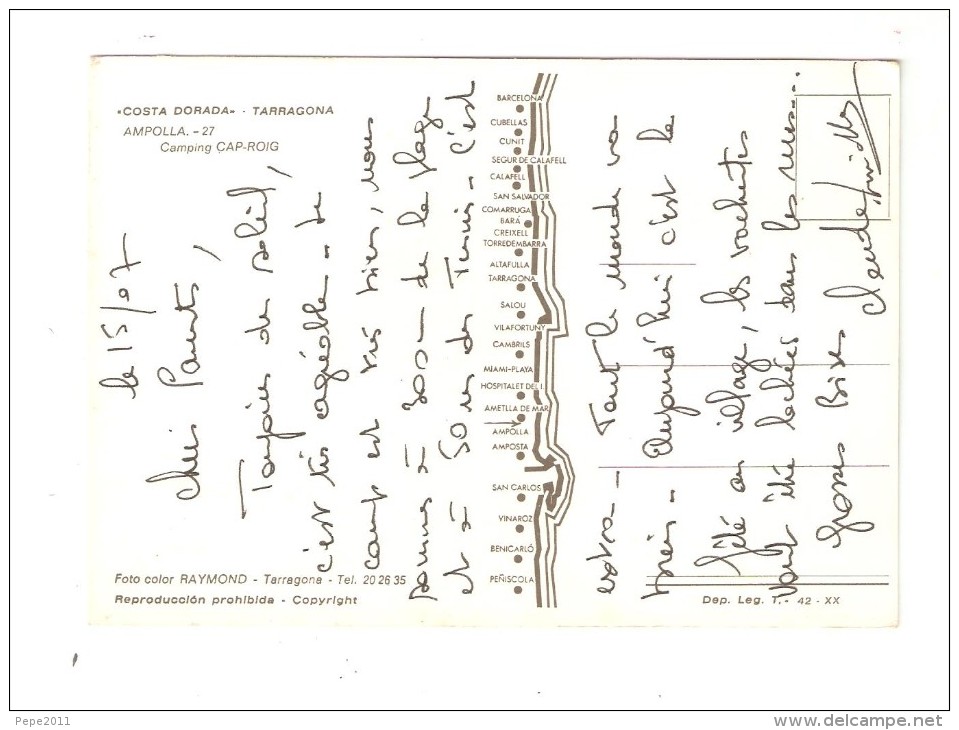 «COSTA DORADA» - TARRAGONA
AMPOLLA. - 27
Camping CAP-ROIG
le 15/07
Chers Parents,
Toujours du soleil,
c'est très agréable - Le
camp est très bien, nous
sommes à 300 m de la plage
et à 50 m des Tennis - C'est
BARCELONA
CUBELLAS
CUNIT
SEGUR DE CALAFELL
CALAFELL
SAN SALVADOR
COMARRUGA
BARÁ
CREIXELL
TORREDEMBARRA
ALTAFULLA
TARRAGONA
SALOU
VILAFORTUNY
CAMBRILS
MIAMI-PLAYA
HOSPITALET DEL I.
AMETLLA DE MAR
AMPOLLA
AMPOSTA
SAN CARLOS
VINAROZ
BENICARLÓ
PEÑISCOLA
extra - Tout le monde va
bien - Aujourd'hui c'est la
fête au village, les vachettes
vont être lachées dans les rues...
Grosses Bises
Claude
Foto color RAYMOND - Tarragona - Tel. 20 26 35
Reproducción prohibida - Copyright
Dep. Leg. T. - 42 - XX
Pepe2011
www.delcampe.net